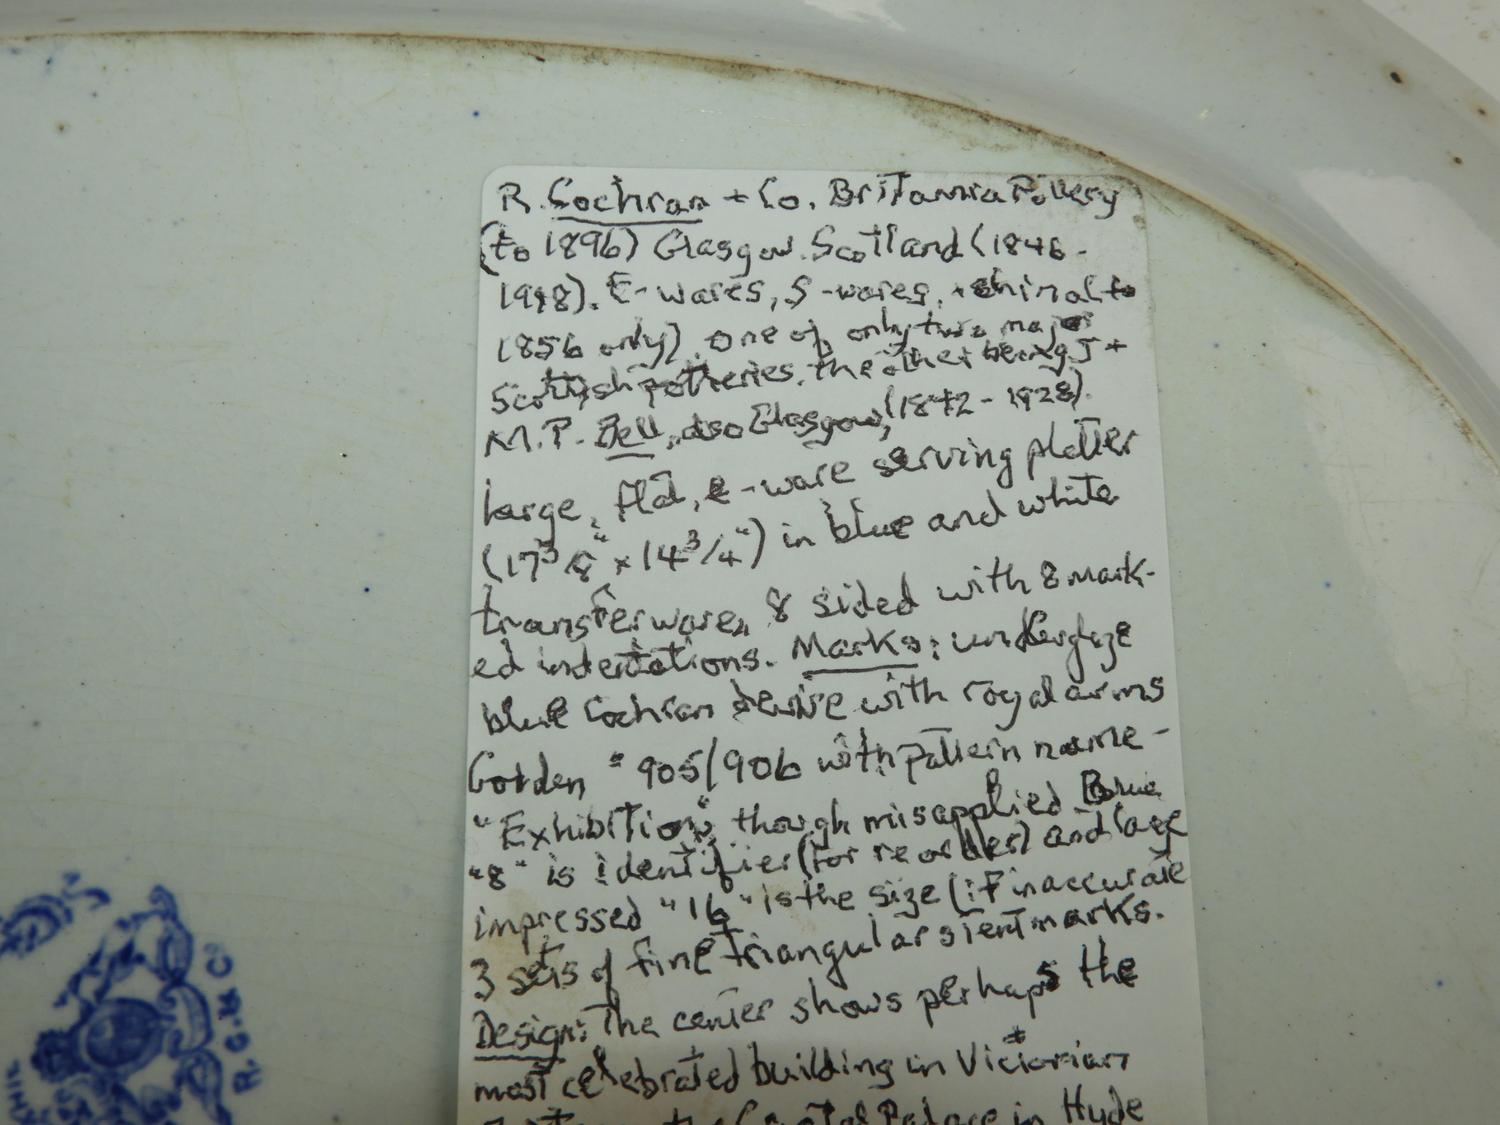 R. Cochran + Co. Britannia Pottery
(to 1896) Glasgow. Scotland (1846-
1918). E-wares, S-wares, + china (to
1856 only). One of only two major
Scottish potteries. the other being J +
M.P. Bell, also Glasgow, (1842-1928).
large, flat, e-ware serving platter
(17 3/8" x 14 3/4") in blue and white
transferware, 8 sided with 8 mark-
ed indentations. Marks: underglaze
blue Cochran device with royal arms
Godden # 905/906 with pattern name-
"Exhibition", though misapplied. Blue
"8" is identifier (for reorder) and large
impressed "16" is the size (if inaccurate
3 sets of fine triangular stent marks.
Design: The center shows perhaps the
most celebrated building in Victorian
the Crystal Palace in Hyde
R. C. & C